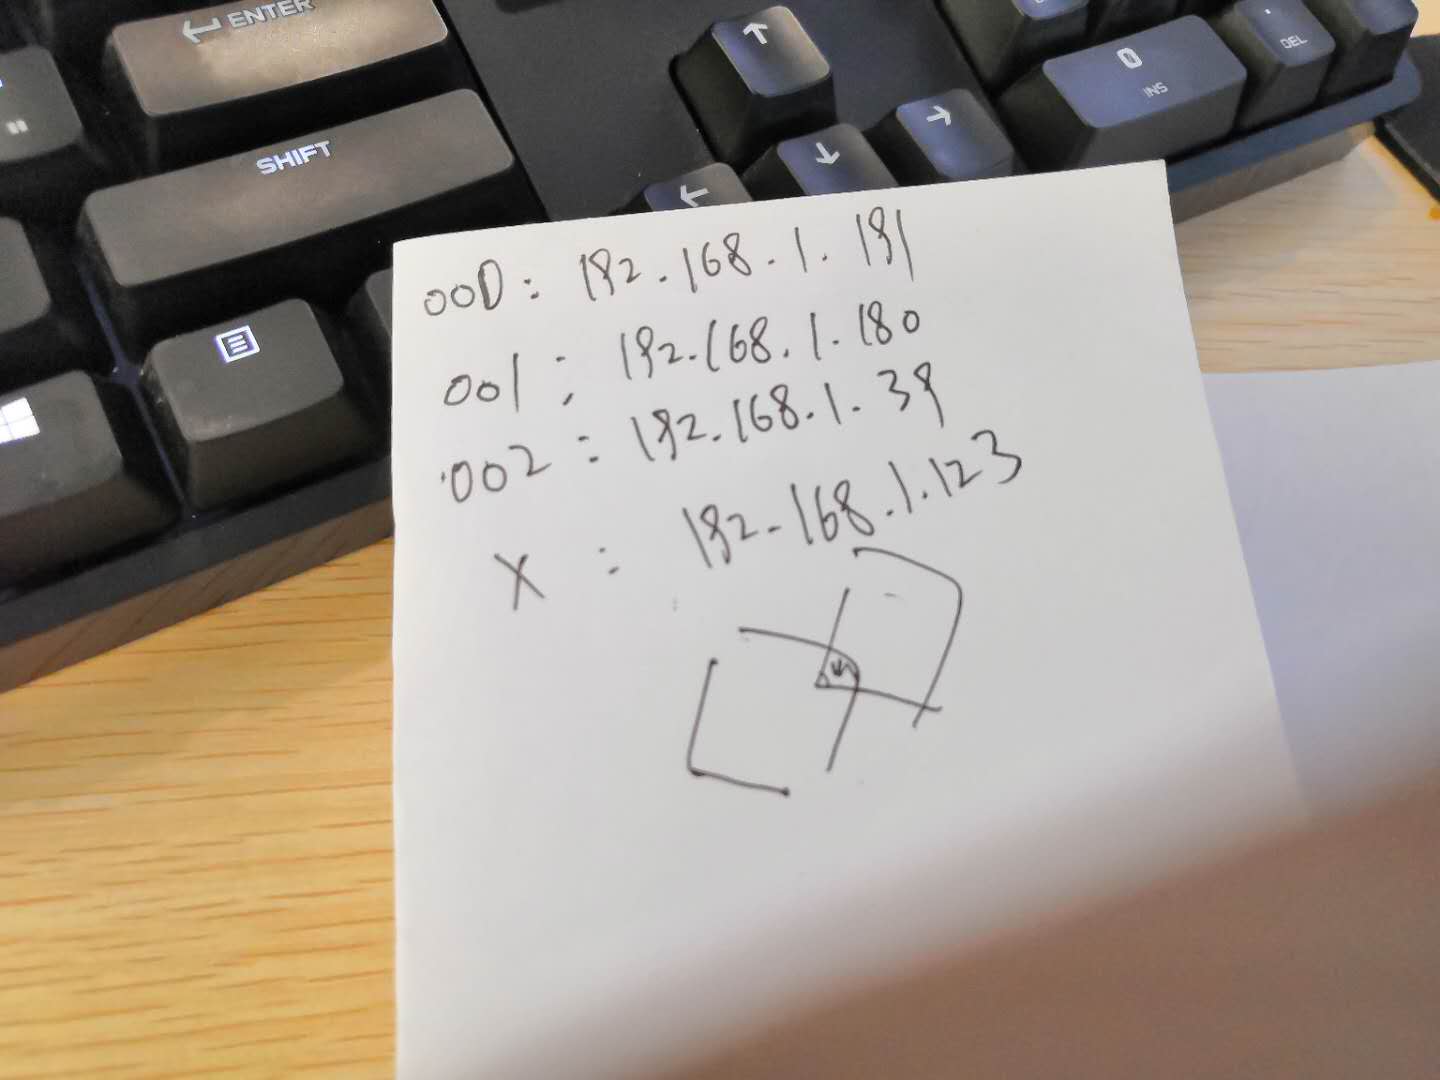 ENTER
SHIFT
0
INS
.
DEL
000: 192.168.1.191
001: 192.168.1.180
002: 192.168.1.39
X: 192.168.1.123